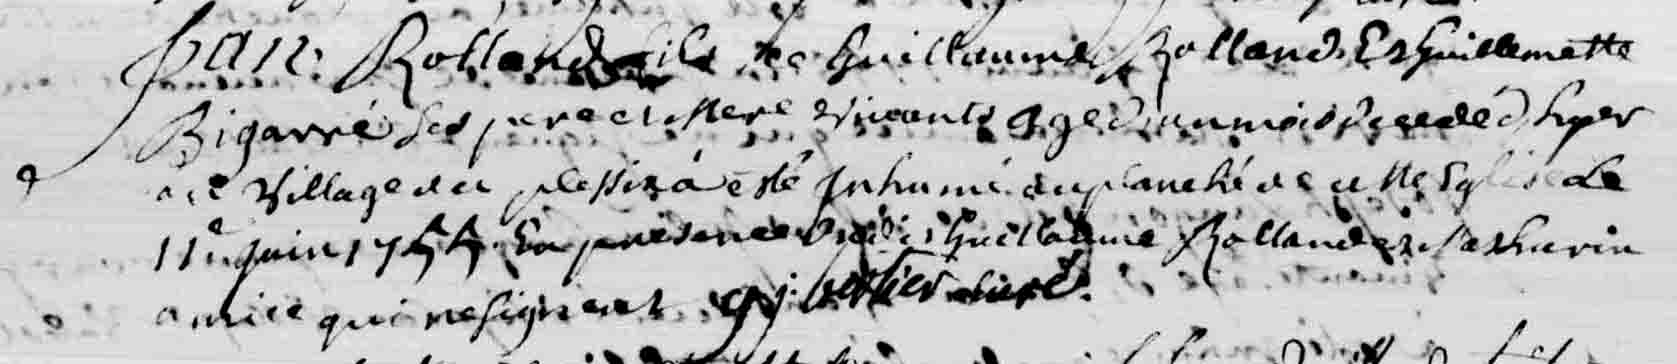 Jan Rolland fils de Guillaume Rolland Et Guillemette
Bigarré Ses pere et Mere vivants agé d'un mois decedé hyer
au village du plessix a esté Inhumé au planché de cette Eglise Le
11e juin 1755 En presence dudit Guillaume Rolland et Mathurin
amice qui ne signent curé.